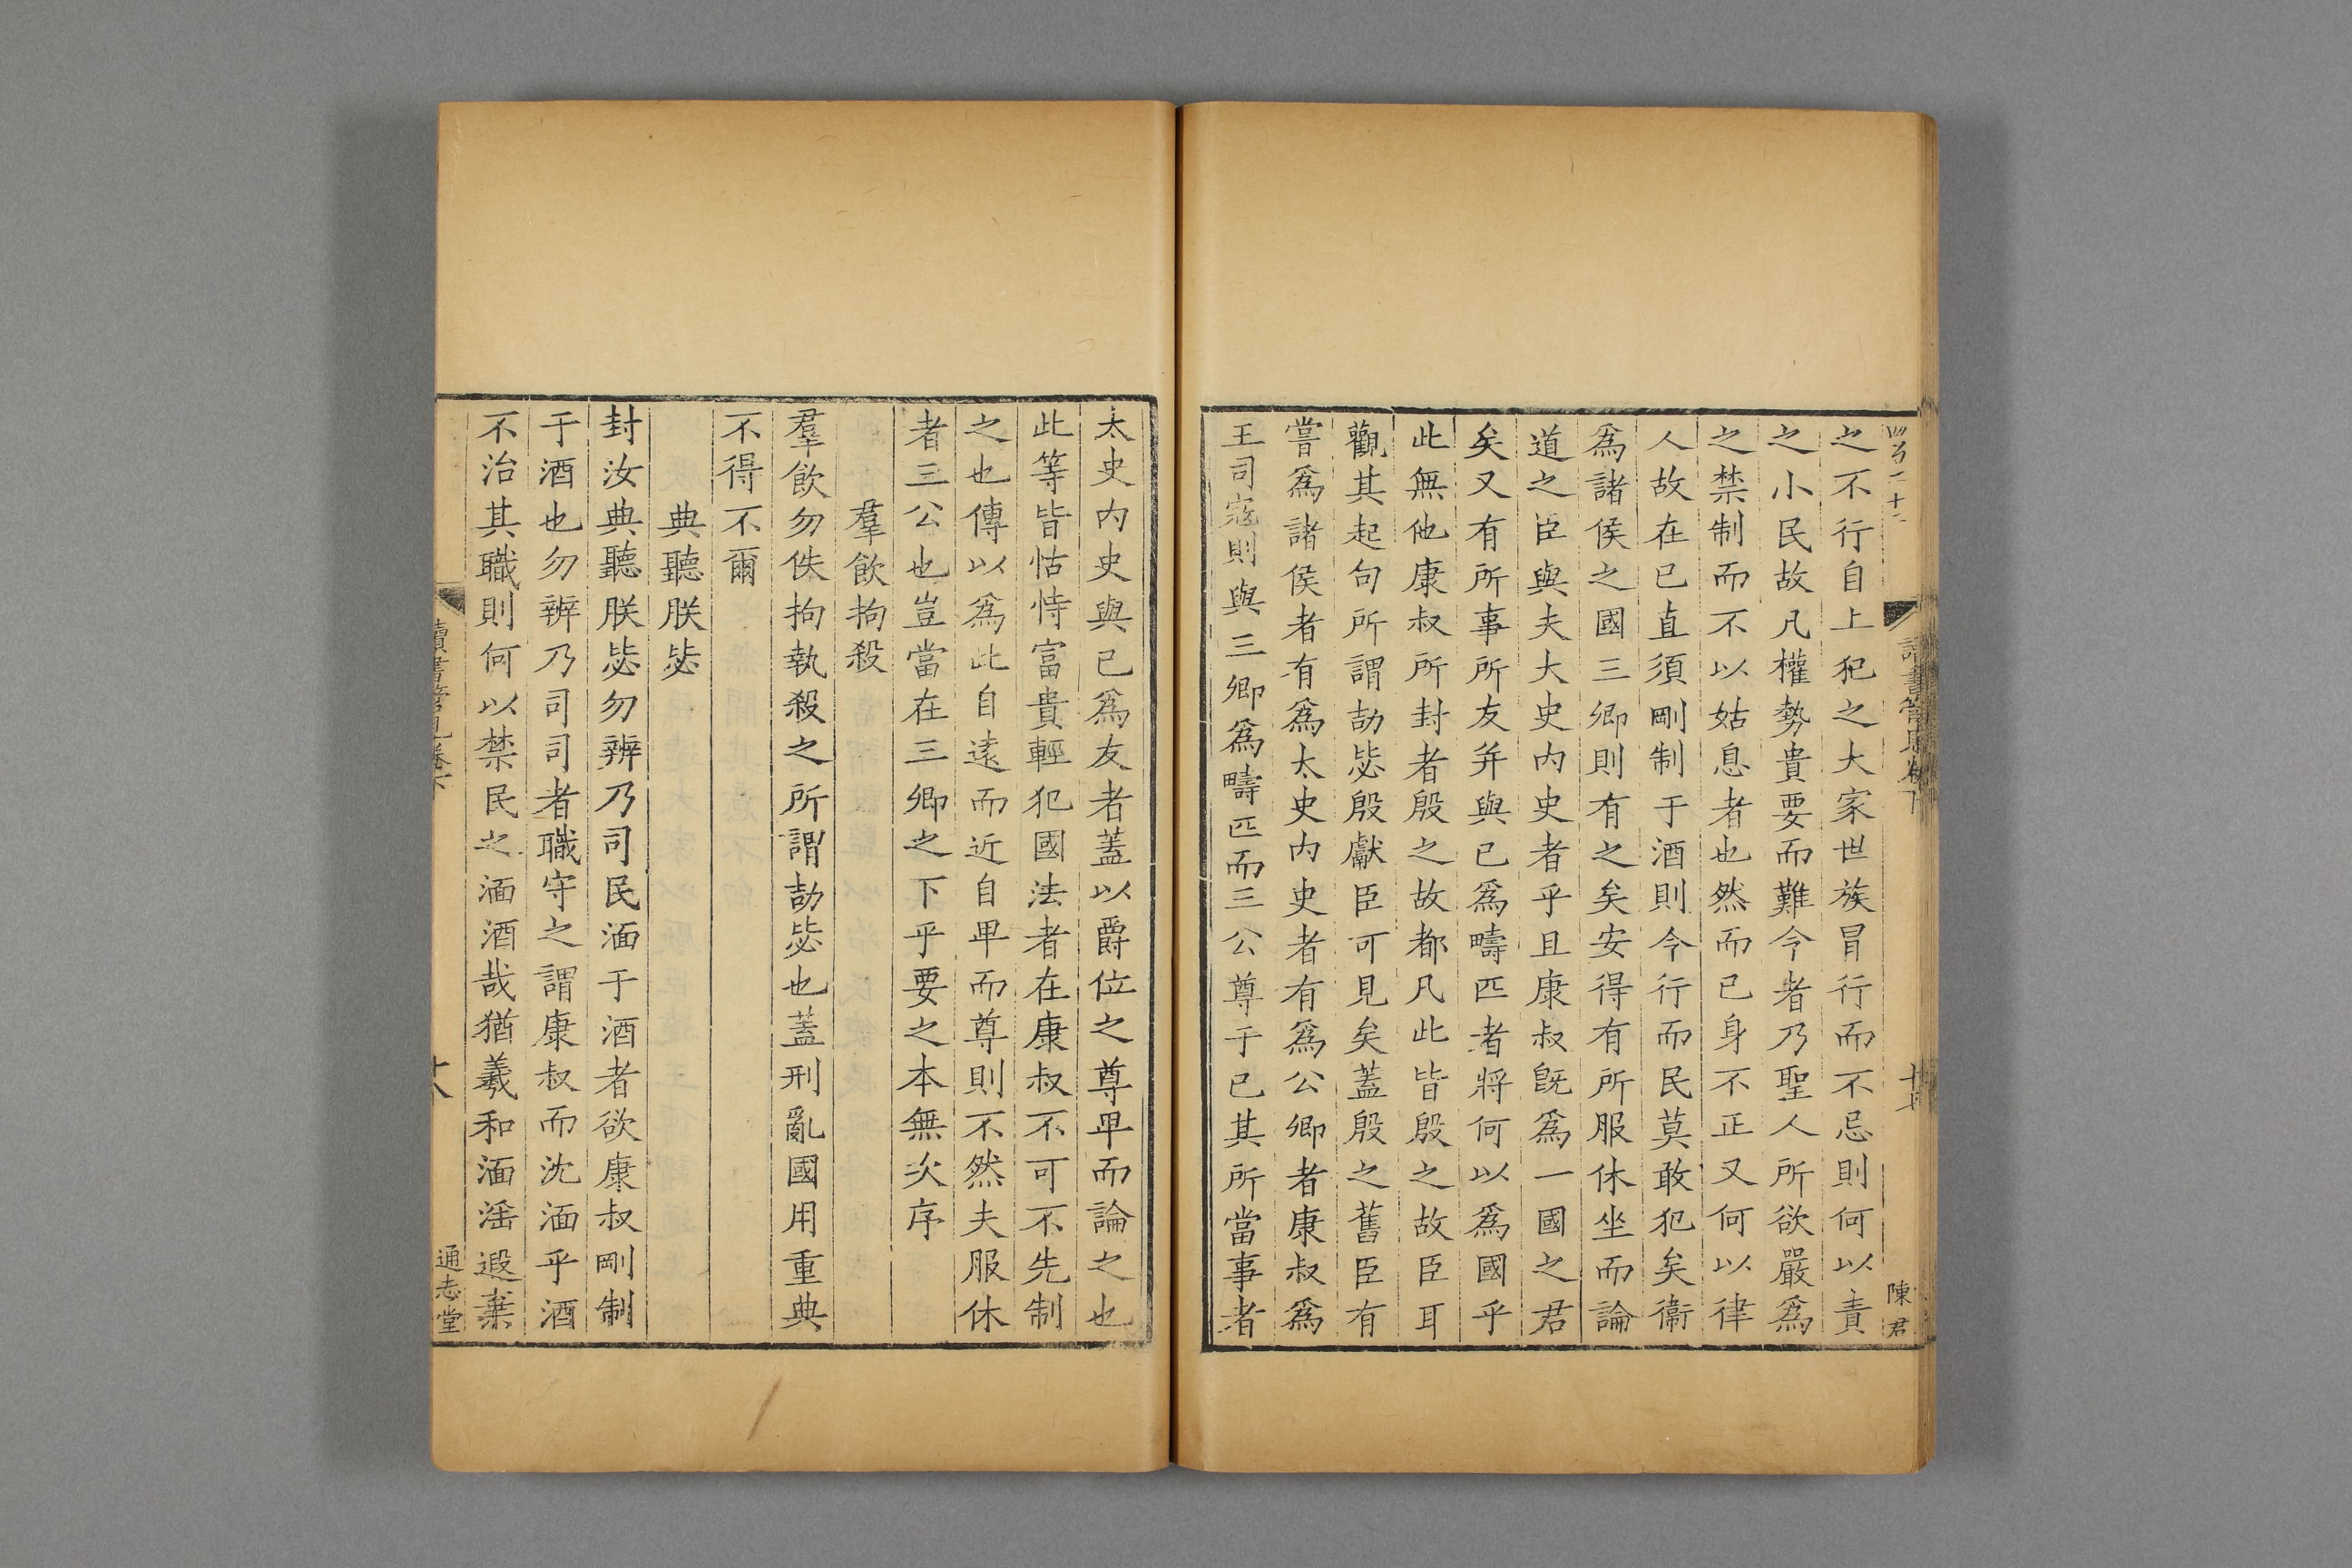 四百二十二
讀書管見卷下
十七
陳君
之不行自上犯之大家世族冒行而不忌則何以責
之小民故凡權勢貴要而難令者乃聖人所欲嚴爲
之禁制而不以姑息者也然而已身不正又何以律
人故在已直須剛制于酒則令行而民莫敢犯矣衞
爲諸侯之國三卿則有之矣安得有所服休坐而論
道之臣與夫大史内史者乎且康叔旣爲一國之君
矣又有所事所友并與已爲疇匹者將何以爲國乎
此無他康叔所封者殷之故都凡此皆殷之故臣耳
觀其起句所謂劼毖殷獻臣可見矣蓋殷之舊臣有
嘗爲諸侯者有爲太史内史者有爲公卿者康叔爲
王司寇則與三卿爲疇匹而三公尊于已其所當事者
太史内史與已爲友者蓋以爵位之尊卑而論之也
此等皆怙恃富貴輕犯國法者在康叔不可不先制
之也傳以爲此自遠而近自卑而尊則不然夫服休
者三公也豈當在三卿之下乎要之本無次序
羣飲拘殺
羣飲勿佚拘執殺之所謂劼毖也蓋刑亂國用重典
不得不爾
典聽朕毖
封汝典聽朕毖勿辨乃司民湎于酒者欲康叔剛制
于酒也勿辨乃司司者職守之謂康叔而沈湎乎酒
不治其職則何以禁民之湎酒哉猶羲和湎淫遐棄
讀書管見卷下
十八
通志堂